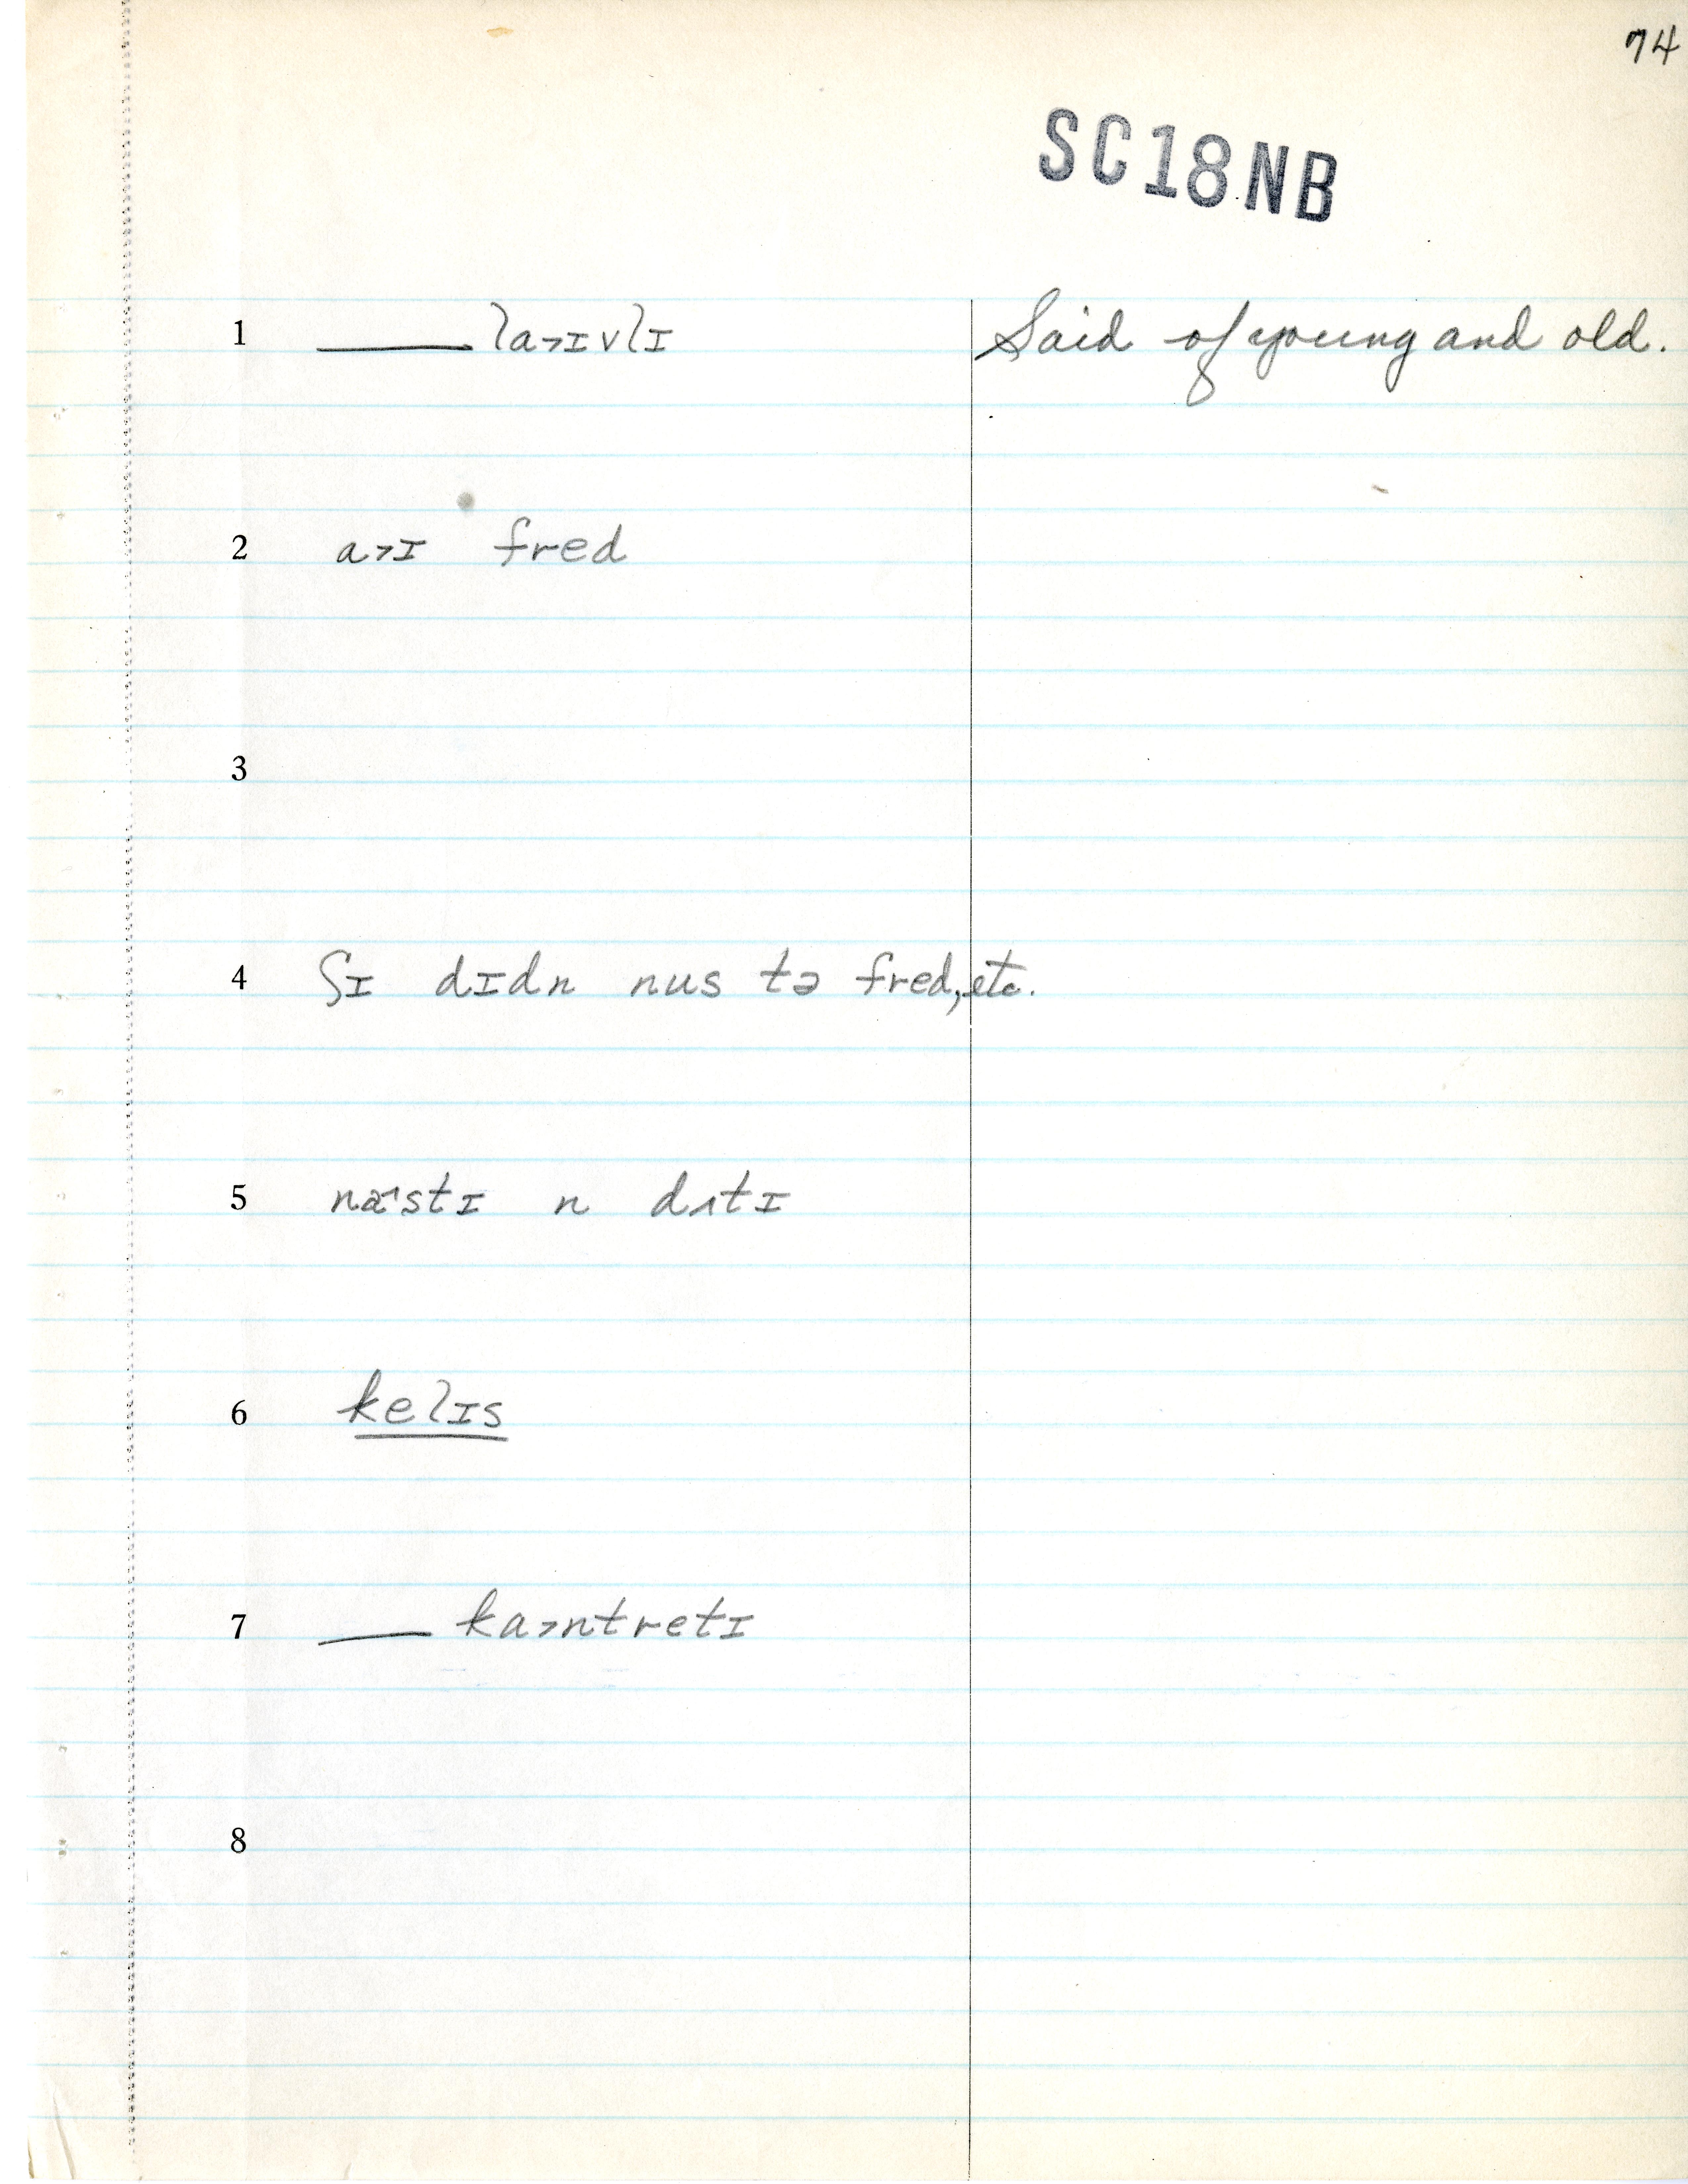 74
SC18NB
1 ———lɑ>ɪvlɪ Said of young and old.
2 ɑ>ɪ fred
3
4 ʃɪ dɪdn nus tə fred, etc.
5 næ^stɪ n dɪ^tɪ
6 kelɪs
7 ——— kɑ>ntretɪ
8